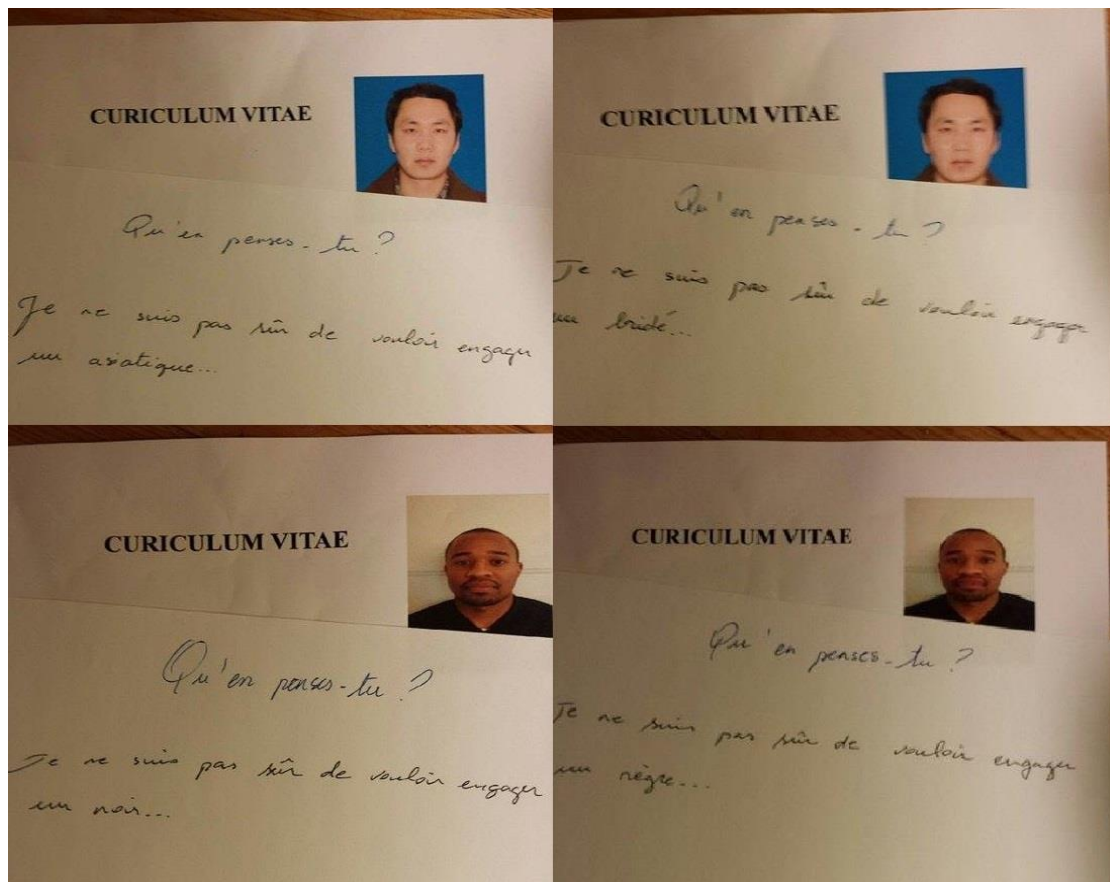 CURICULUM VITAE
Qu'en penses-tu ?
Je ne suis pas sûr de vouloir engager
un asiatique...
CURICULUM VITAE
Qu'en penses-tu ?
Je ne suis pas sûr de vouloir engager
un bridé...
CURICULUM VITAE
Qu'en penses-tu ?
Je ne suis pas sûr de vouloir engager
un noir...
CURICULUM VITAE
Qu'en penses-tu ?
Je ne suis pas sûr de vouloir engager
un nègre...